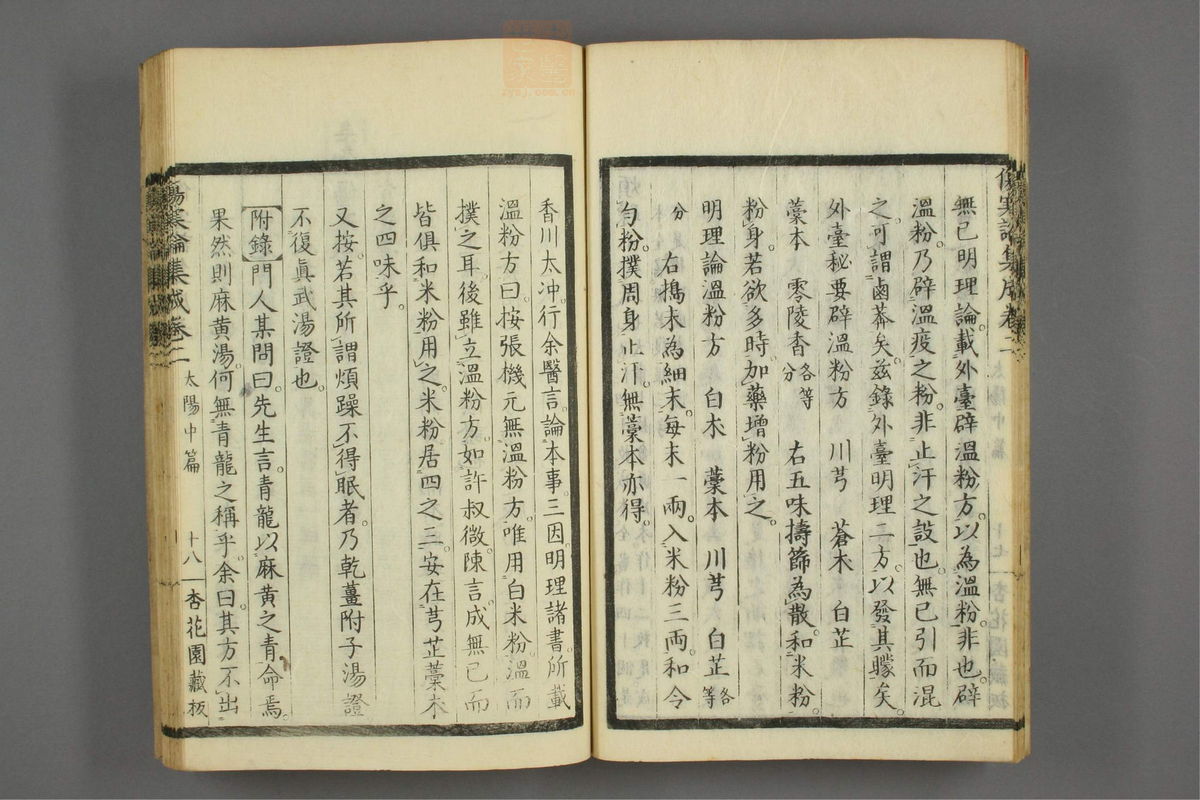 無已明理論。載外臺辟溫粉方。以為溫粉。非也。辟
溫粉。乃辟溫疫之粉。非止汗之設也。無已引而混
之。可謂鹵莽矣。茲錄外臺明理二方。以發其矇矣。
外臺秘要辟溫粉方　川芎　蒼朮　白芷
藁本　零陵香各等分　右五味擣篩為散。和米粉
粉身。若欲多時。加藥增粉用之。
明理論溫粉方　白朮　藁本　川芎　白芷各等
分　右搗末為細末。每末一兩。入米粉三兩。和令
勻粉撲周身止汗。無藁本亦得。
傷寒論集成卷二
香川太冲。行余醫言。論本事三因。明理諸書。所載
溫粉方曰。按張機元無溫粉方。唯用白米粉。溫而
撲之耳。後雖立溫粉方。如許叔微。陳言。成無已而
皆俱和米粉用之。米粉居四之三。安在芎芷藁朮
之四味乎。
又按。若其所謂煩躁不得眠者。乃乾薑附子湯證
不復眞武湯證也。
附錄門人某問曰。先生言。青龍以麻黃之青命焉。
果然則麻黃湯。何無青龍之稱乎。余曰。其方不出
傷寒論集成卷二　太陽中篇　十八　杏花園藏板